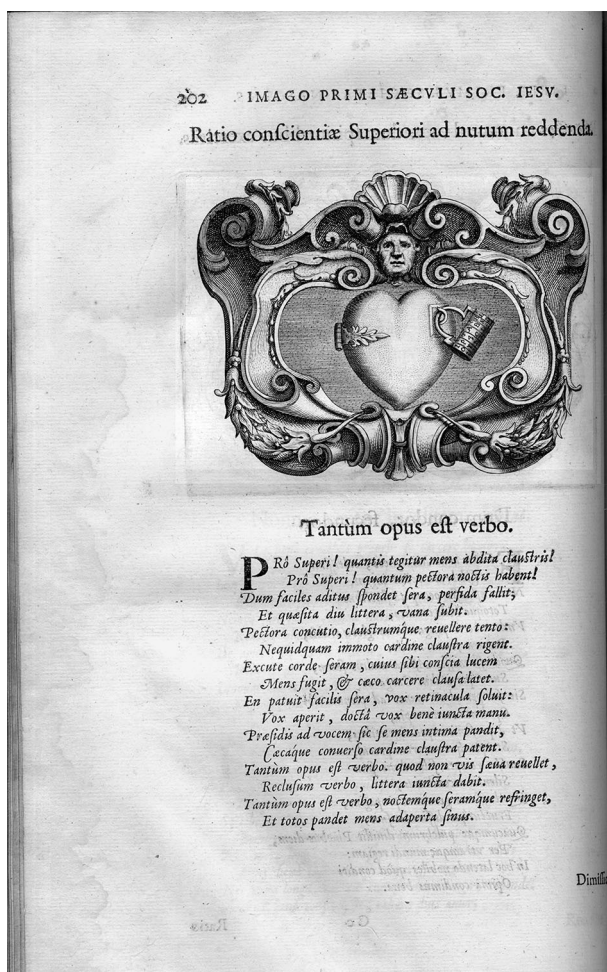 202 IMAGO PRIMI SÆCVLI SOC. IESV.
Ratio conſcientiæ Superiori ad nutum reddenda.
Tantùm opus eſt verbo.
PRô Superi! quantis tegitur mens abdita clauſtris!
Prô Superi! quantum pectora noctis habent!
Dum faciles aditus ſpondet ſera, perfida fallit;
Et quæſita diu littera, vana ſubit.
Pectora concutio, clauſtrumq́ue reuellere tento:
Nequidquam immoto cardine clauſtra rigent.
Excute corde ſeram, cuius ſibi conſcia lucem
Mens fugit, & cæco carcere clauſa latet.
En patuit facilis ſera, vox retinacula ſoluit:
Vox aperit, doctâ vox benè iuncta manu.
Præſidis ad vocem ſic ſe mens intima pandit,
Cæcaque conuerſo cardine clauſtra patent.
Tantùm opus eſt verbo. quod non vis ſæua reuellet,
Recluſum verbo, littera iuncta dabit.
Tantùm opus eſt verbo, noctemque ſeramq́ue refringet,
Et totos pandet mens adaperta ſinus.